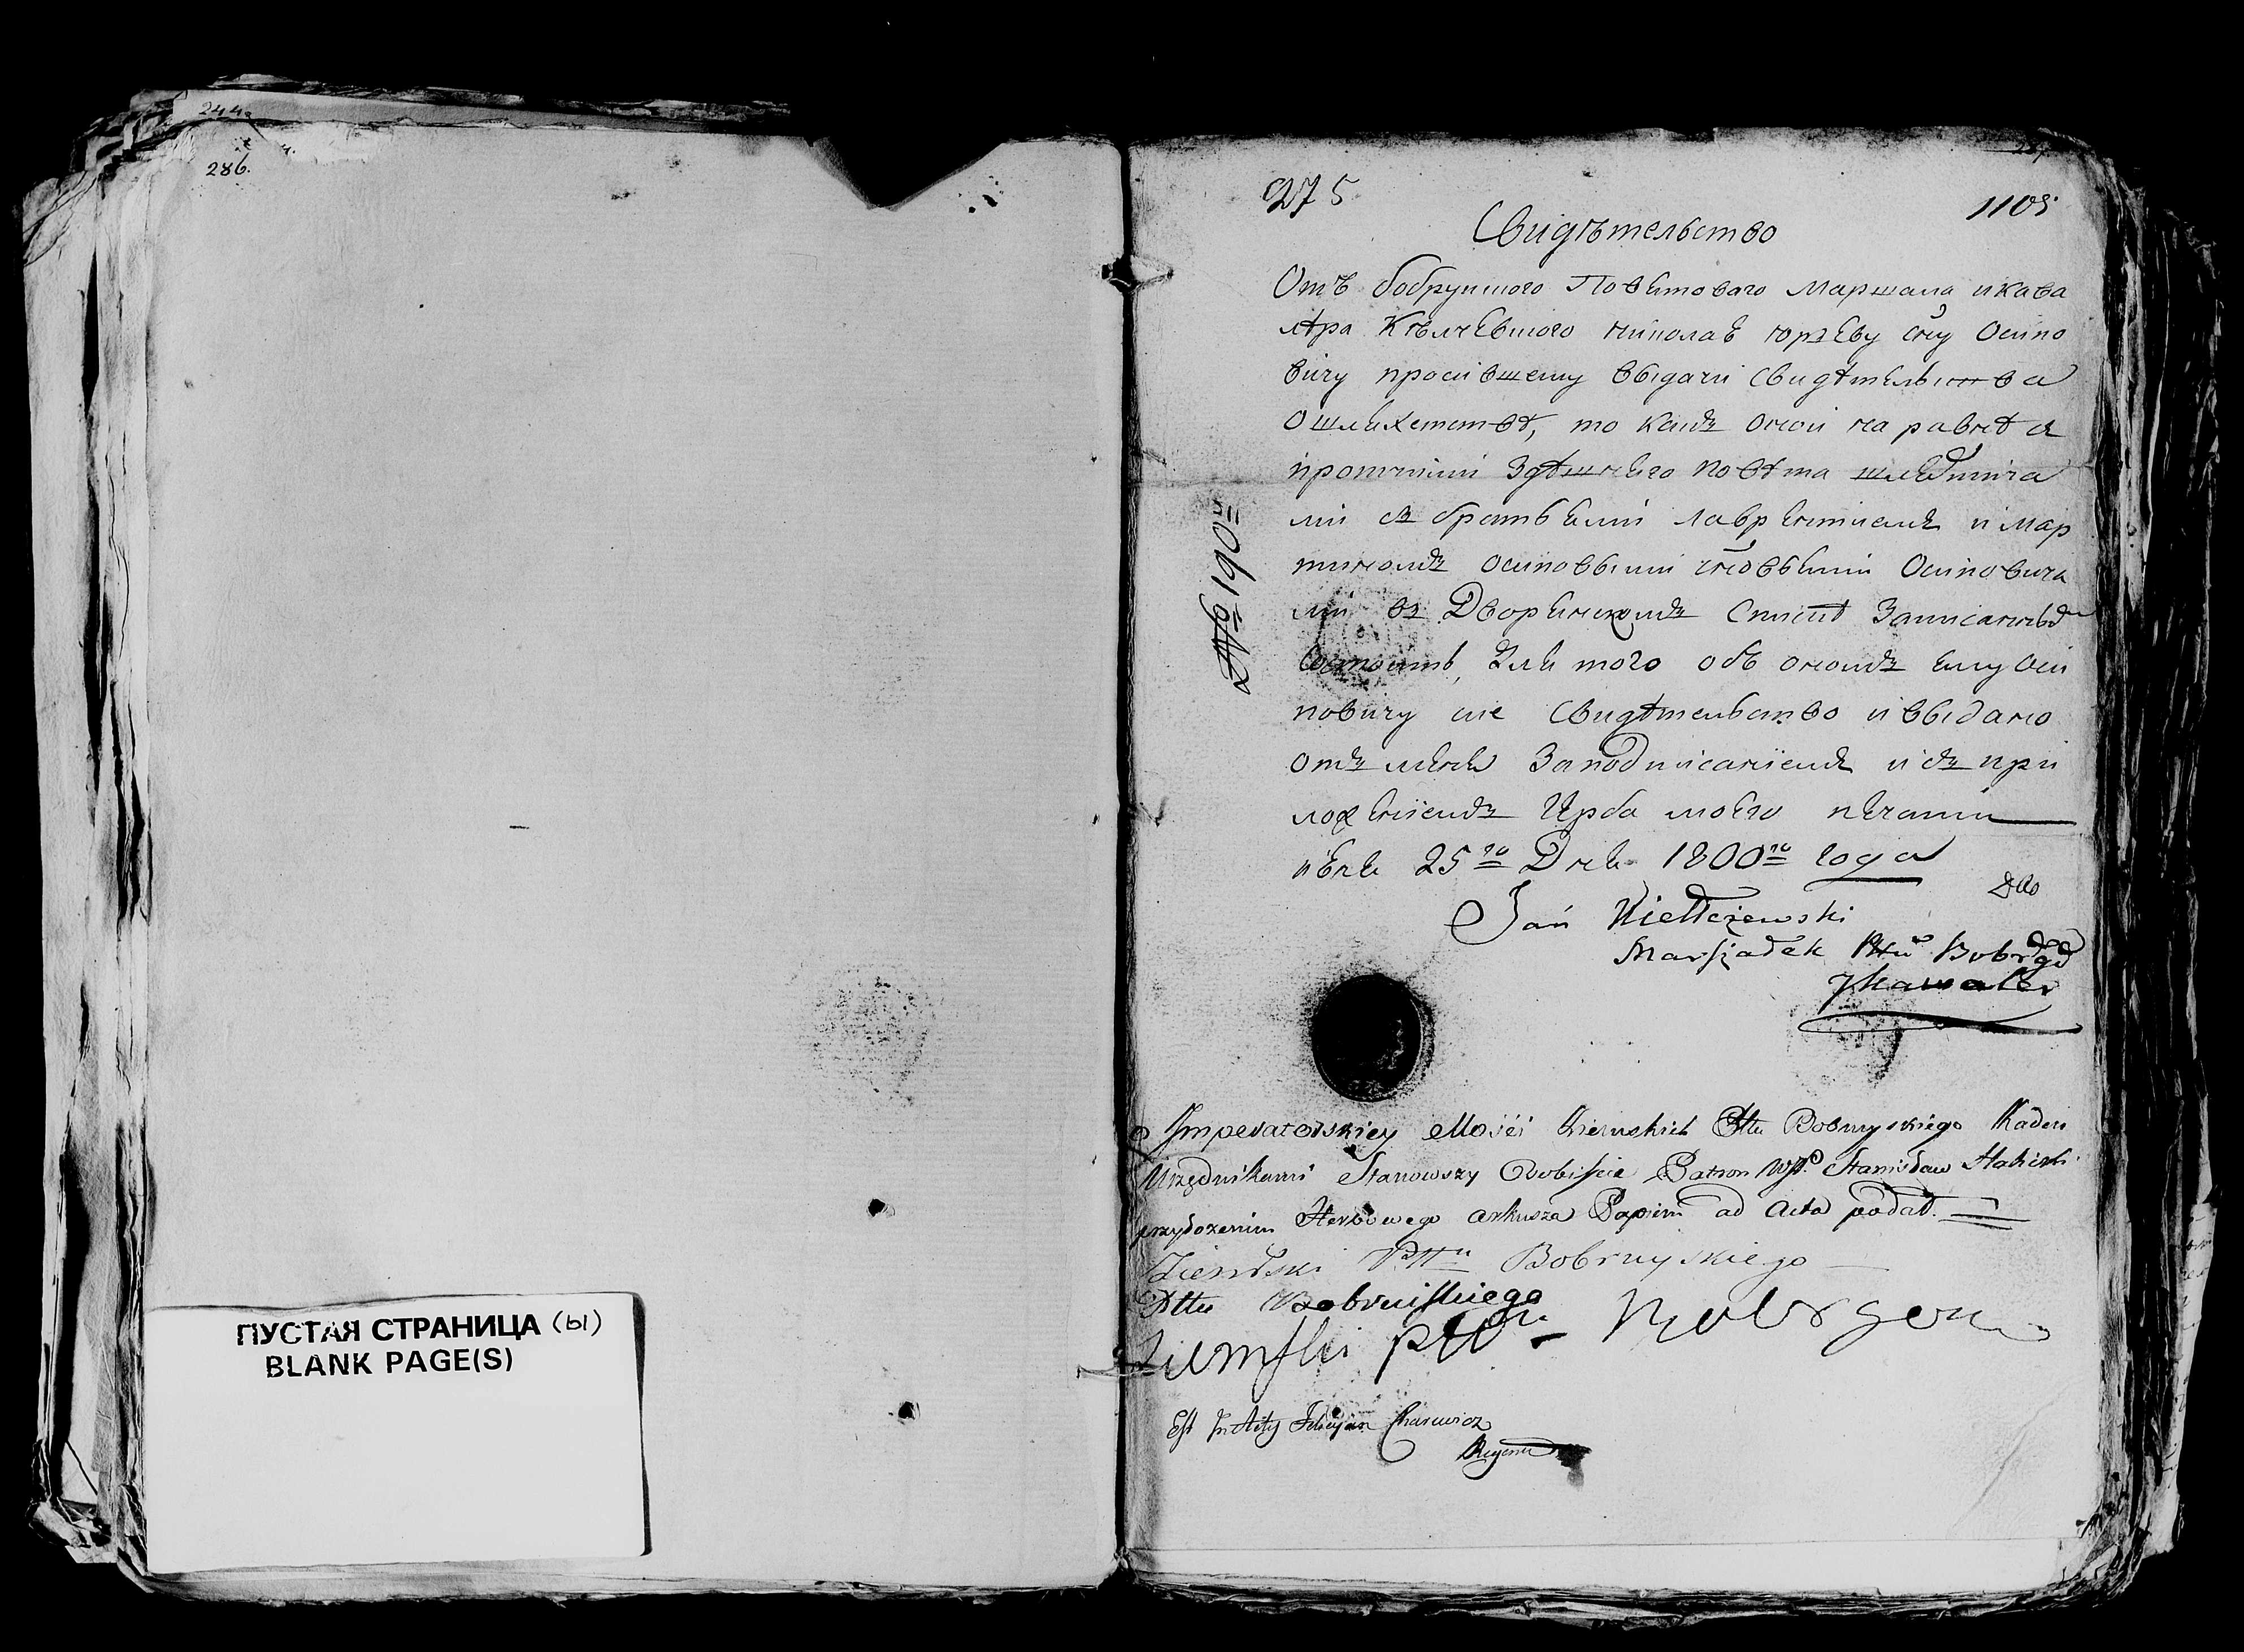 244
286.
ПУСТАЯ СТРАНИЦА (Ы)
BLANK PAGE(S)
275
1105
Свидѣтельство
Отъ бобруйского Поветоваго Маршала и кава
лѣра Кѣлчевского николаю юрьеву сну Осипо
вичу просившему выдачи свидѣтельства
о шлехетствѣ, то какъ оной на равнѣ съ
протчими здѣшнего повѣта шляхтича
ми съ братьеми лаврентиемъ и мар
тиномъ осиповыми сновьеми Осипович
ми въ Дворенскомъ списке записанным
состоитъ, для того объ ономъ ему Оси
повичу сие свидѣтельство и выдано
отъ меня за подписаниемъ и съ при
ложениемъ герба моего печати
июля 25го Дня 1800го года
№ 190й
Jan Kiełłczewski
Marszałek Pttu Bobrgo
y Kawaler
Imperatorskiey Mości Ziemskich Pttu Bobruyskiego
Urzędnikami Stanowszy Osobiście Patron WJP. Stanisław
przyłożeniem Herbowego arkusza Papieru ad Acta podał.
Ziemski Pttu Bobruyskiego
Pttu Bobruiskiego
Ziemski pttu
Est In Actis Felicyan
Regent